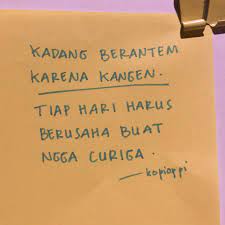 KADANG BERANTEM
KARENA KANGEN.
TIAP HARI HARUS
BERUSAHA BUAT
NGGA CURIGA.
—kopiappi